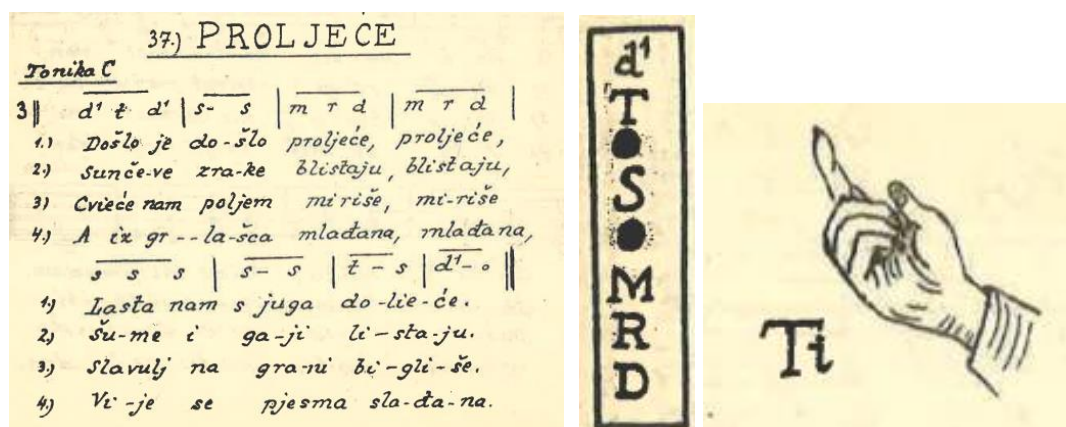 37.) PROLJEĆE
Tonika C
3‖ d¹ t d¹ | s- s | m r d | m r d |
1.) Došlo je do-šlo proljeće, proljeće,
2.) Sunče-ve zra-ke blistaju, blistaju,
3) Cvieće nam poljem miriše, mi-riše
4.) A iz gr--la-šca mlađana, mlađana,
s s s | s- s | t - s | d¹- o ‖
1.) Lasta nam s juga do-lie-će.
2.) Šu-me i ga-ji li-sta-ju.
3.) Slavulj na gra-ni bi-gli-še.
4.) Vi-je se pjesma sla-đa-na.
d¹
T
S
M
R
D
Ti